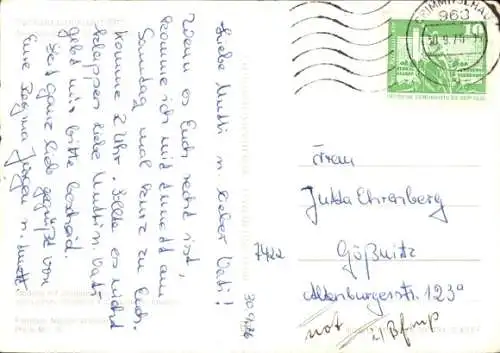 Liebe Mutti u. lieber Vati!
Wenn es Euch recht ist,
komme ich mit Annett am
Sonntag mal kurz zu Euch.
Komme 2 Uhr. Sollte es nicht
klappen liebe Mutti u. Vati
gebt mir bitte bescheid.
Seit ganz lieb gegrüßt von
Eure Regina Jürgen u. Annett.
30.9.76
CRIMMITSCHAU
963
30.9.76
10
DEUTSCHE DEMOKRATISCHE REPUBLIK
Frau
Jutta Ehrenberg
7422 Gößnitz
Altenburgerstr. 123a